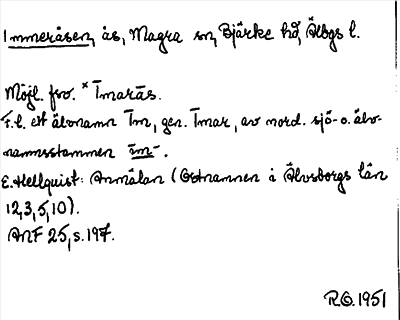 Immeråsen, ås, Magra sn, Bjärke hd, Älvbgs l.
Möjl. fsv. *Īmarās.
F.l. ett älvnamn Īm, gen. Īmar, av nord. sjö- o. älv-
namnsstammen īm-.
E. Hellquist: Anmälan (Ortnamnen i Älvsborgs län
12,3,5,10).
ANF 25, s. 197.
R.O. 1951